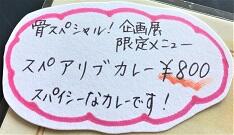 骨スペシャル！企画展
限定メニュー
スペアリブカレー ¥800
スパイシーなカレーです！